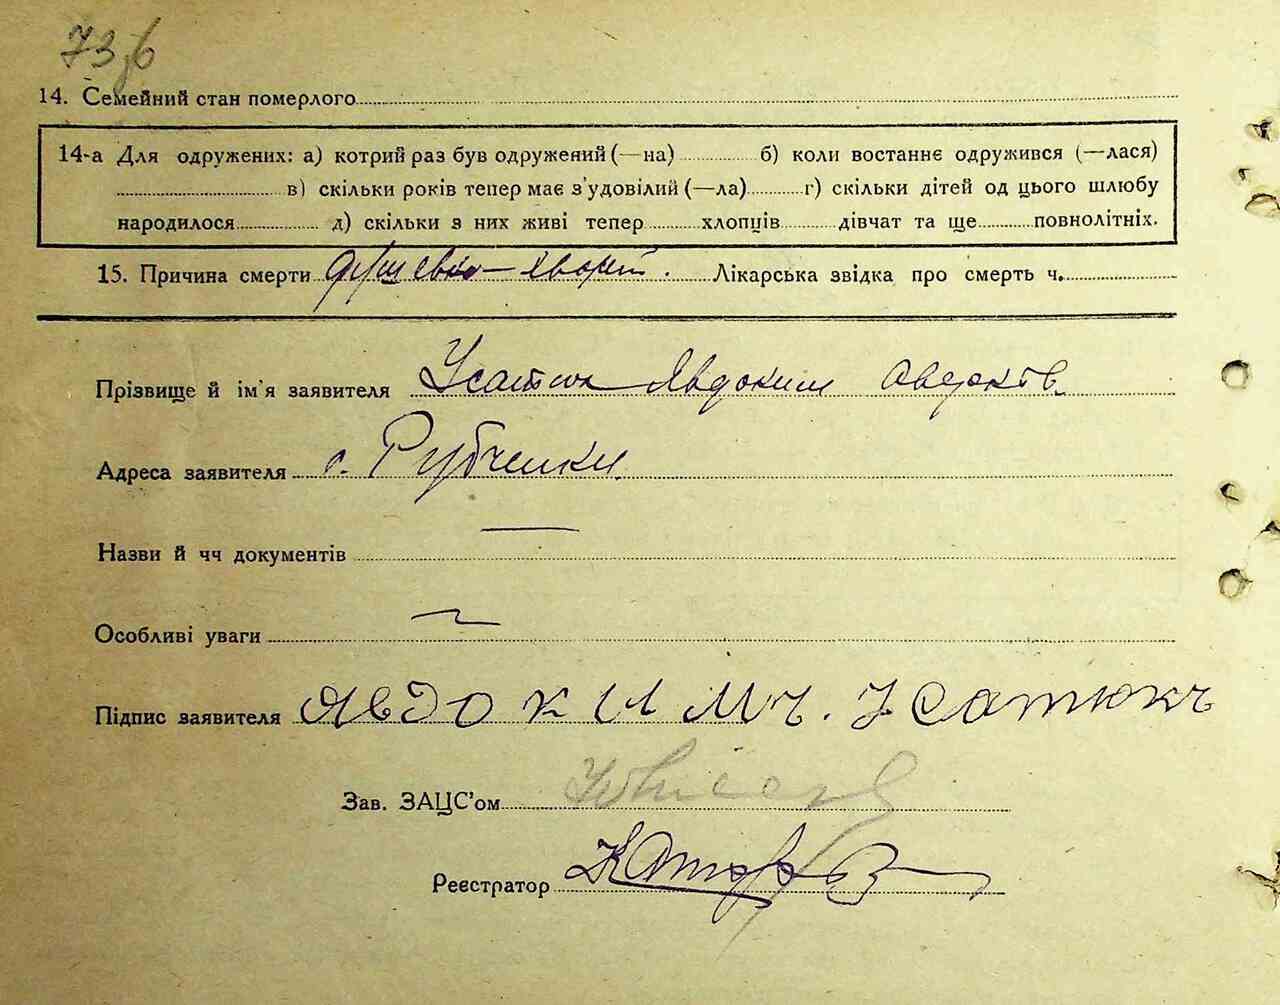 73
14. Семейний стан померлого
14-а Для одружених: а) котрий раз був одружений (—на) б) коли востаннє одружився (—лася)
в) скільки років тепер має з'удовілий (—ла) г) скільки дітей од цього шлюбу
народилося д) скільки з них живі тепер хлопців дівчат та ще повнолітніх.
15. Причина смерти душевно-хворий. Лікарська звідка про смерть ч.
Прізвище й ім'я заявителя Усатюк Явдоким
Адреса заявителя с. Рубченки
Назви й чч документів —
Особливі уваги
Підпис заявителя Явдокимъ. Усатюкъ
Зав. ЗАЦС'ом
Реєстратор